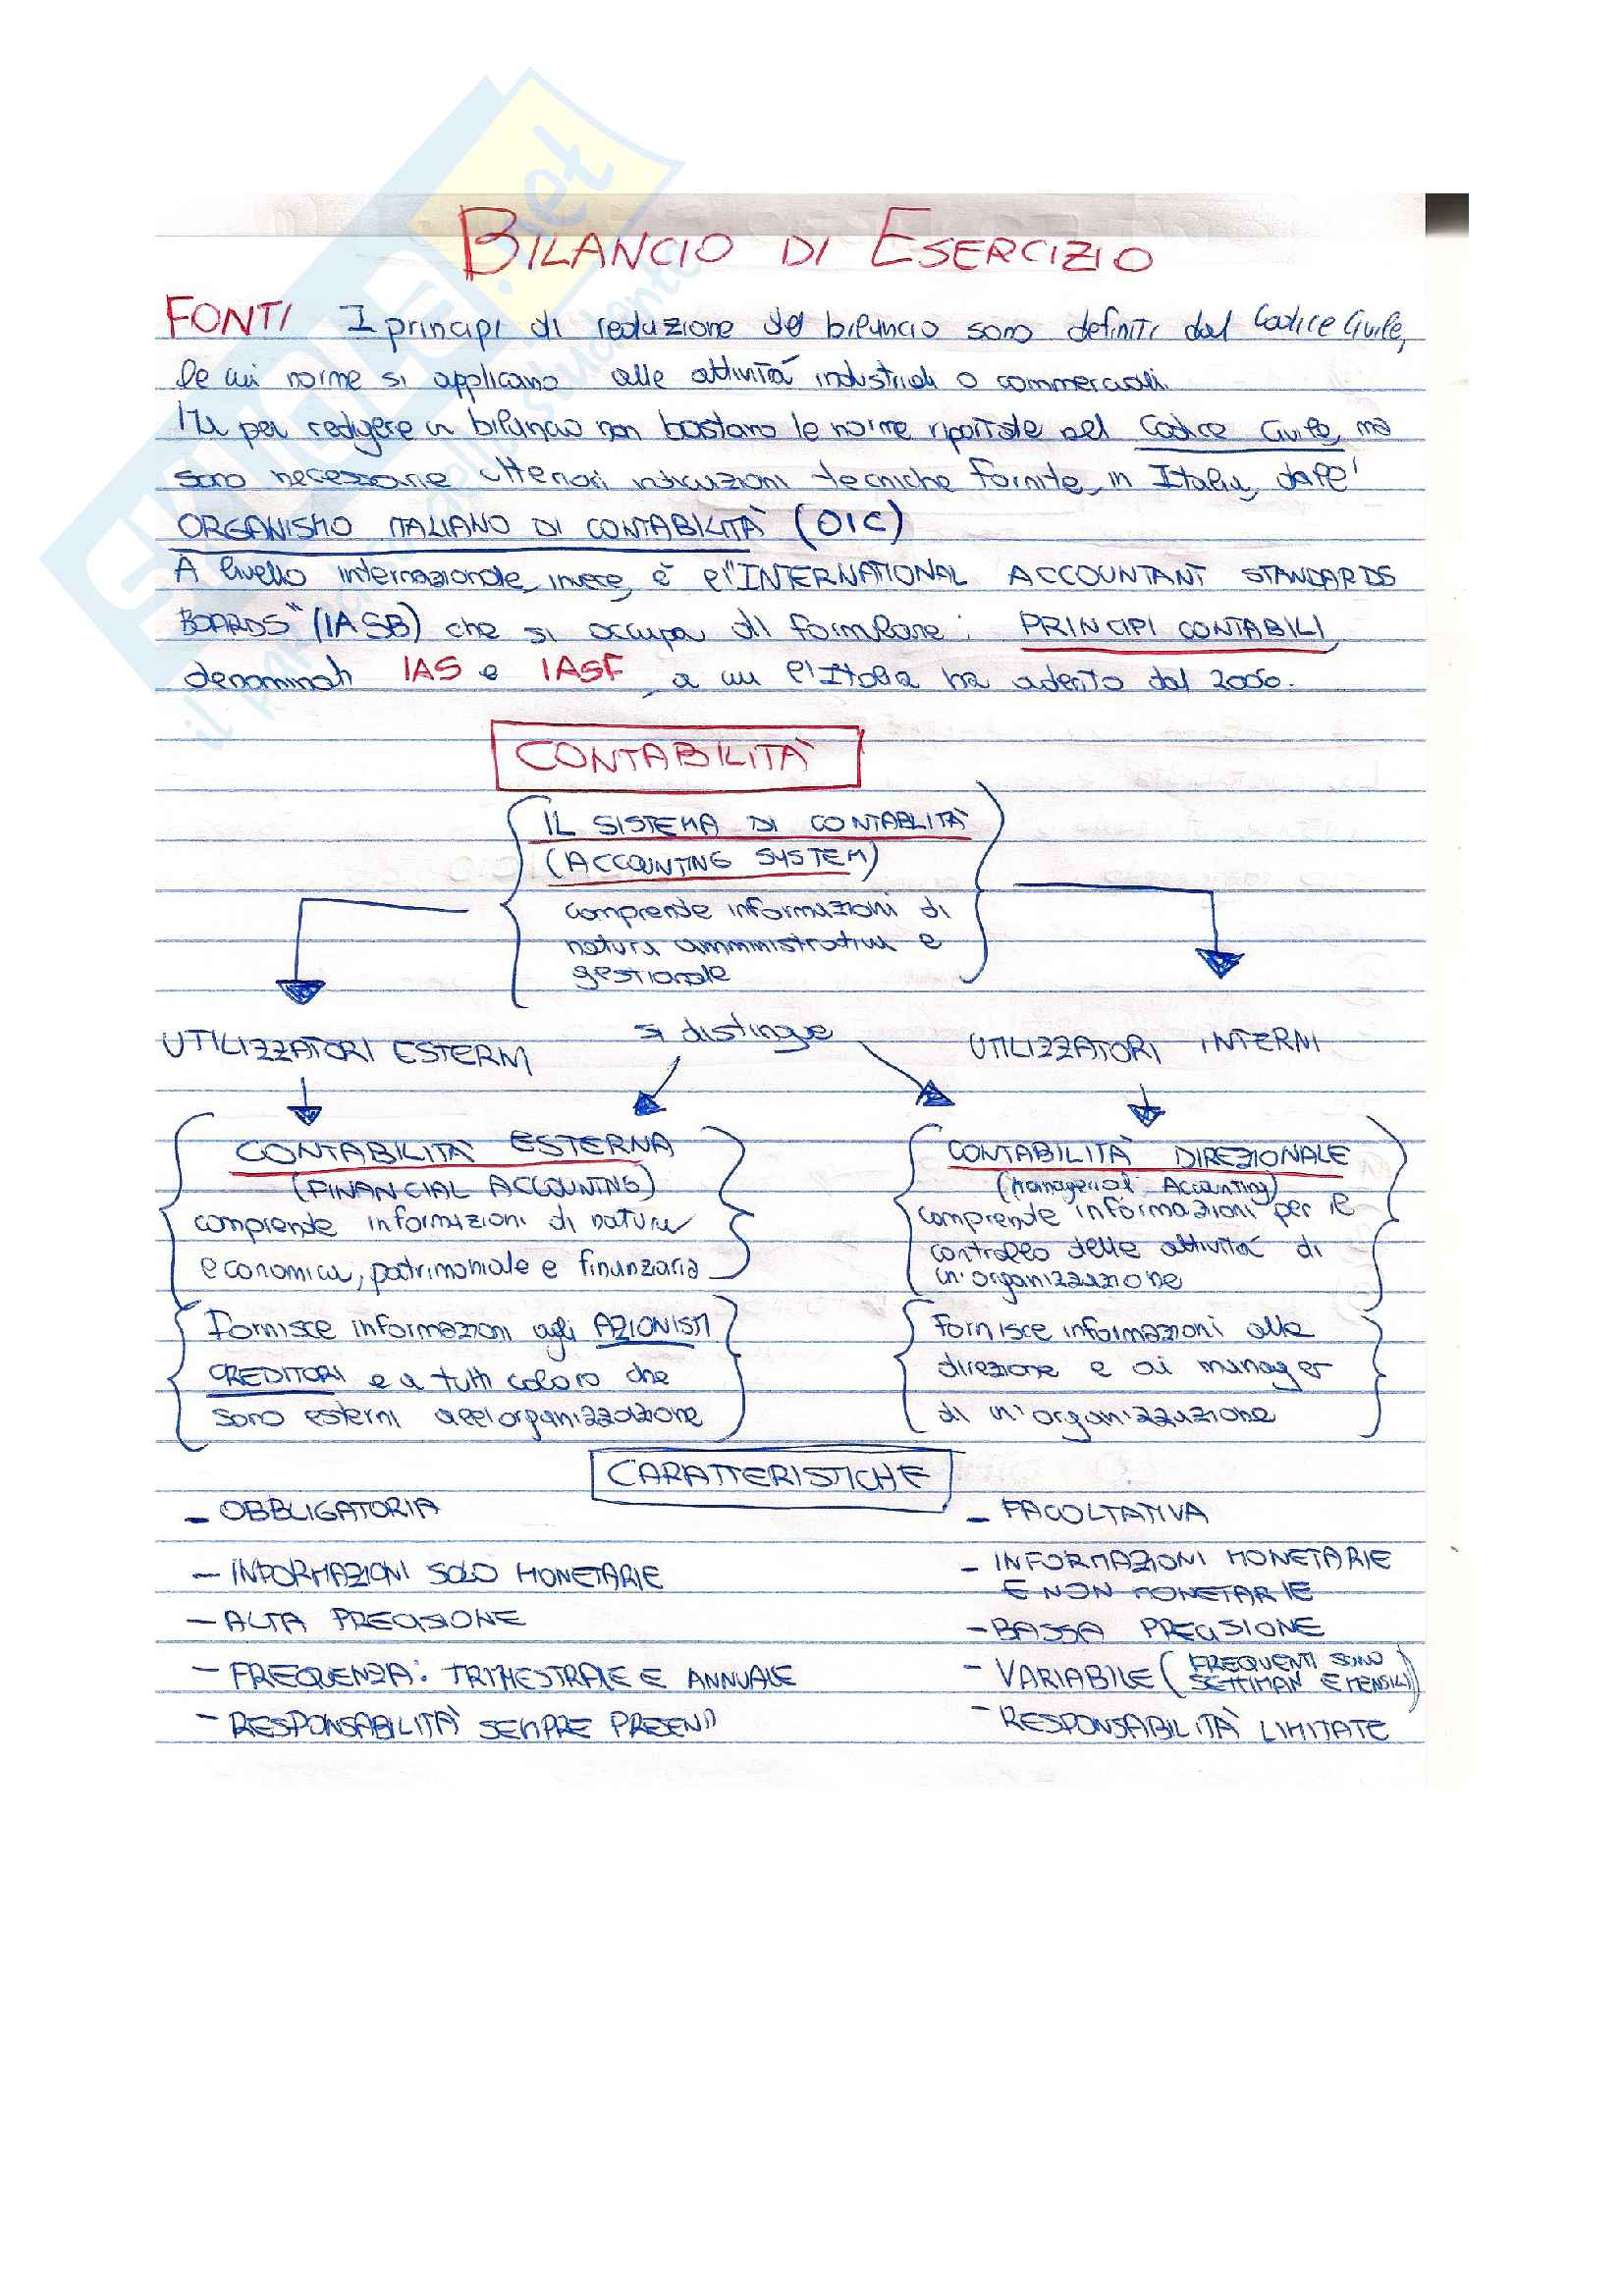 BILANCIO DI ESERCIZIO
FONTI I principi di redazione del bilancio sono definiti dal Codice Civile,
le cui norme si applicano alle attività industriali o commerciali.
Ma per redigere un bilancio non bastano le norme riportate nel Codice Civile, ma
sono necessarie ulteriori istruzioni tecniche fornite, in Italia, dall'
ORGANISMO ITALIANO DI CONTABILITÀ (OIC)
A livello internazionale, invece, è l'"INTERNATIONAL ACCOUNTANT STANDARDS
BOARDS" (IASB) che si occupa di formulare i PRINCIPI CONTABILI
denominati IAS e IASF, a cui l'Italia ha aderito dal 2000.
CONTABILITÀ
IL SISTEMA DI CONTABLITÀ
(ACCOUNTING SYSTEM)
comprende informazioni di
natura amministrativa e
gestionale
UTILIZZATORI ESTERNI
si distingue
UTILIZZATORI INTERNI
CONTABILITÀ ESTERNA
(FINANCIAL ACCOUNTING)
comprende informazioni di natura
economica, patrimoniale e finanziaria
Fornisce informazioni agli AZIONISTI
CREDITORI e a tutti coloro che
sono esterni all'organizzazione
CONTABILITÀ DIREZIONALE
(Managerial Accounting)
comprende informazioni per il
controllo delle attività di
un'organizzazione
Fornisce informazioni alla
direzione e ai manager
di un'organizzazione
CARATTERISTICHE
- OBBLIGATORIA
- INFORMAZIONI SOLO MONETARIE
- ALTA PRECISIONE
- FREQUENZA: TRIMESTRALE E ANNUALE
- RESPONSABILITÀ SEMPRE PRESENTI
- FACOLTATIVA
- INFORMAZIONI MONETARIE
E NON MONETARIE
- BASSA PRECISIONE
- VARIABILE (FREQUENTI SONO
SETTIMAN E MENSILI)
- RESPONSABILITÀ LIMITATE